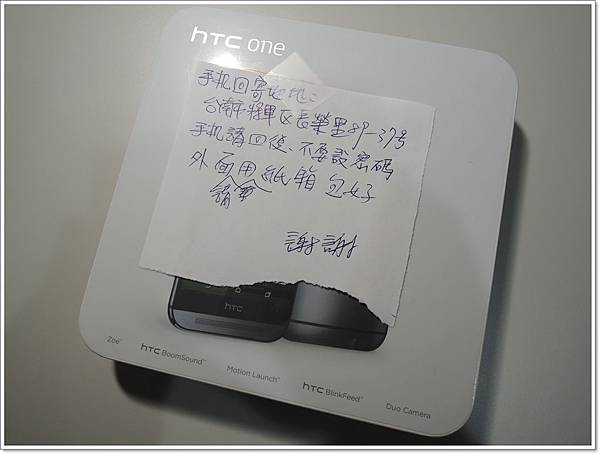 hTC one
手机回寄地址:
台南市將軍区長榮里89-37号
手机請回復、不要設密碼
外面用紙箱包好
謝謝
hTC
Zoe™
hTC BoomSound™
Motion Launch™
hTC BlinkFeed™
Duo Camera